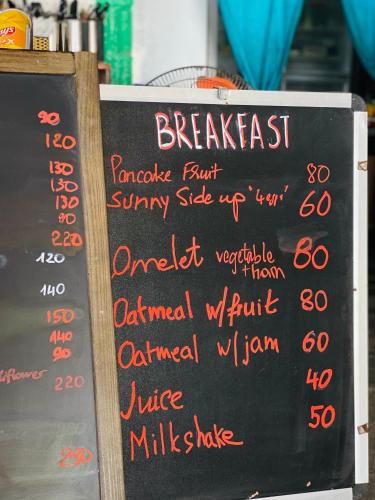 Lay's
90
120
130
130
130
90
220
120
140
150
140
90
220
BREAKFAST
Pancake Fruit 80
Sunny Side up
60
Omelet vegetable 80
+ ham
Oatmeal w/fruit 80
Oatmeal w/jam 60
Juice 40
Milkshake 50